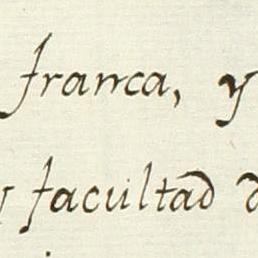 franca, y
y facultad d